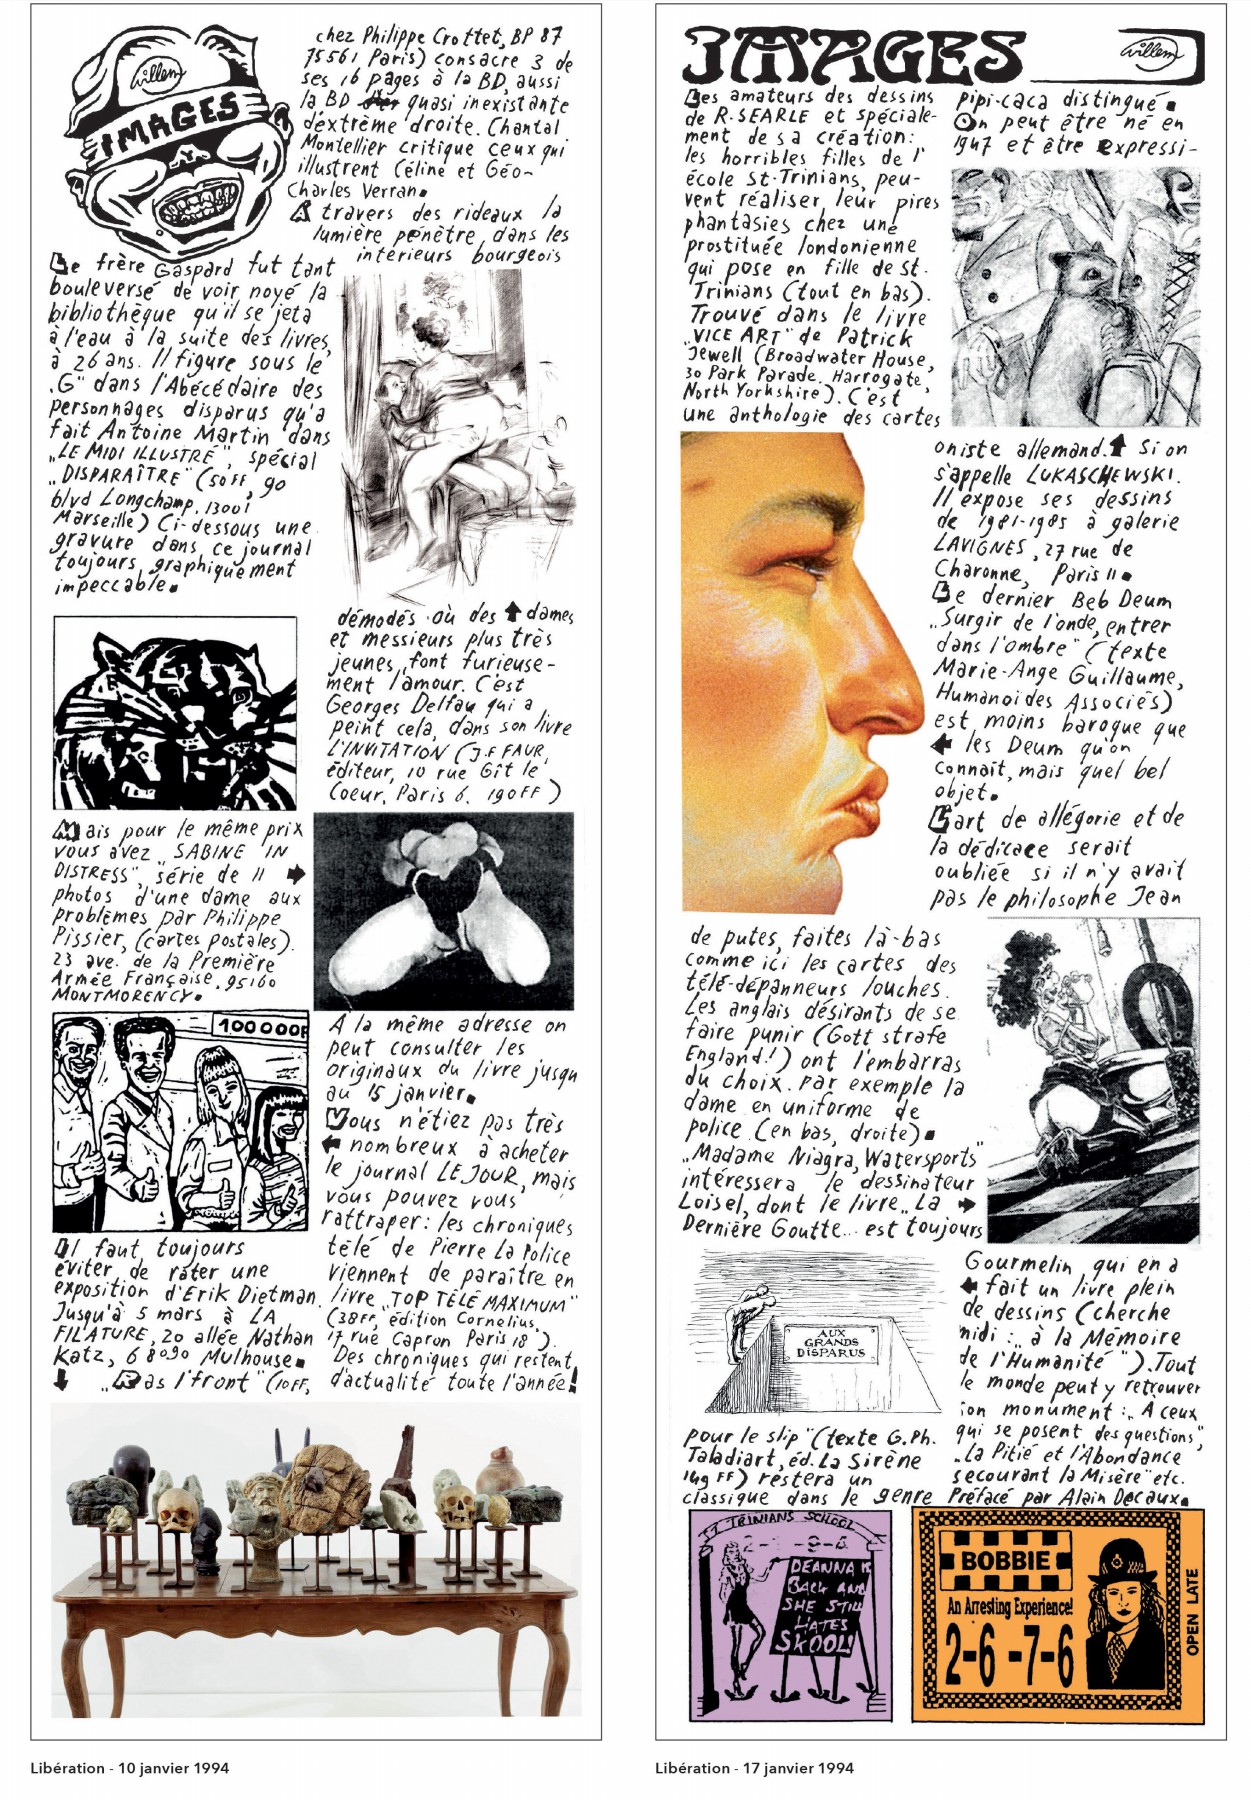 willem
IMAGES
Le frère Gaspard fut tant
bouleversé de voir noyé la
bibliothèque qu'il se jeta
à l'eau à la suite des livres,
à 26 ans. Il figure sous le
„G" dans l'Abécédaire des
personnages disparus qu'a
fait Antoine Martin dans
„LE MIDI ILLUSTRÉ", spécial
„DISPARAÎTRE" (50FF, 90
blvd Longchamp, 13001
Marseille) Ci-dessous une
gravure dans ce journal
toujours graphiquement
impeccable.
Mais pour le même prix
vous avez „SABINE IN
DISTRESS", série de 11
photos d'une dame aux
problèmes par Philippe
Pissier, (cartes postales).
23 ave. de la Première
Armée Française, 95160
MONTMORENCY.
100 000F
Il faut toujours
éviter de rater une
exposition d'Erik Dietman.
Jusqu'à 5 mars à LA
FILATURE, 20 allée Nathan
Katz, 68090 Mulhouse.
„Ras l'front" (10FF,
chez Philippe Crottet, BP 87
75561 Paris) consacre 3 de
ses 16 pages à la BD, aussi
la BD quasi inexistante
d'extrème droite. Chantal
Montellier critique ceux qui
illustrent Céline et Géo-
Charles Verran.
A travers des rideaux la
lumière pénètre dans les
interieurs bourgeois
démodés où des dames
et messieurs plus très
jeunes font furieuse-
ment l'amour. C'est
Georges Delfau qui a
peint cela, dans son livre
L'INVITATION (J.F. FAUR,
éditeur, 10 rue Gît le
Coeur, Paris 6. 190FF)
A la même adresse on
peut consulter les
originaux du livre jusqu
au 15 janvier.
Vous n'étiez pas très
nombreux à acheter
le journal LE JOUR, mais
vous pouvez vous
rattraper: les chroniques
télé de Pierre La Police
viennent de paraître en
livre „TOP TÉLÉ MAXIMUM"
(38FF, édition Cornelius,
17 rue Capron Paris 18).
Des chroniques qui restent
d'actualité toute l'année!
Libération - 10 janvier 1994
IMAGES
willem
Les amateurs des dessins
de R. SEARLE et spéciale-
ment de sa création:
les horribles filles de l'
école St-Trinians, peu-
vent réaliser leur pires
phantasies chez une
prostituée londonienne
qui pose en fille de St-
Trinians (tout en bas).
Trouvé dans le livre
„VICE ART" de Patrick
Jewell (Broadwater House,
30 Park Parade, Harrogate,
North Yorkshire). C'est
une anthologie des cartes
de putes, faites là-bas
comme ici les cartes des
télé-dépanneurs louches.
Les anglais désirants de se
faire punir (Gott strafe
England!) ont l'embarras
du choix. Par exemple la
dame en uniforme de
police (en bas, droite).
„Madame Niagra, Watersports"
intéressera le dessinateur
Loisel, dont le livre „La
Dernière Goutte... est toujours
AUX
GRANDS
DISPARUS
pour le slip" (texte G.Ph.
Taladiart, éd. La Sirène
149 FF) restera un
classique dans le genre
pipi-caca distingué.
On peut être né en
1947 et être expressi-
oniste allemand. Si on
s'appelle LUKASCHEWSKI.
Il expose ses dessins
de 1981-1985 à galerie
LAVIGNES, 27 rue de
Charonne, Paris 11.
Le dernier Beb Deum
„Surgir de l'onde, entrer
dans l'ombre" (texte
Marie-Ange Guillaume,
Humanoides Associés)
est moins baroque que
les Deum qu'on
connaît, mais quel bel
objet.
L'art de allégorie et de
la dédicace serait
oubliée si il n'y avait
pas le philosophe Jean
Gourmelin qui en a
fait un livre plein
de dessins (cherche
midi: „à la Mémoire
de l'Humanité"). Tout
le monde peut y retrouver
son monument: „A ceux
qui se posent des questions",
„La Pitié et l'Abondance
secourant la Misère" etc.
Préfacé par Alain Decaux.
ST TRINIANS SCHOOL
DEANNA IS
BACK AND
SHE STILL
HATES
SKOOL!
BOBBIE
An Arresting Experience!
2-6 -7-6
OPEN LATE
Libération - 17 janvier 1994